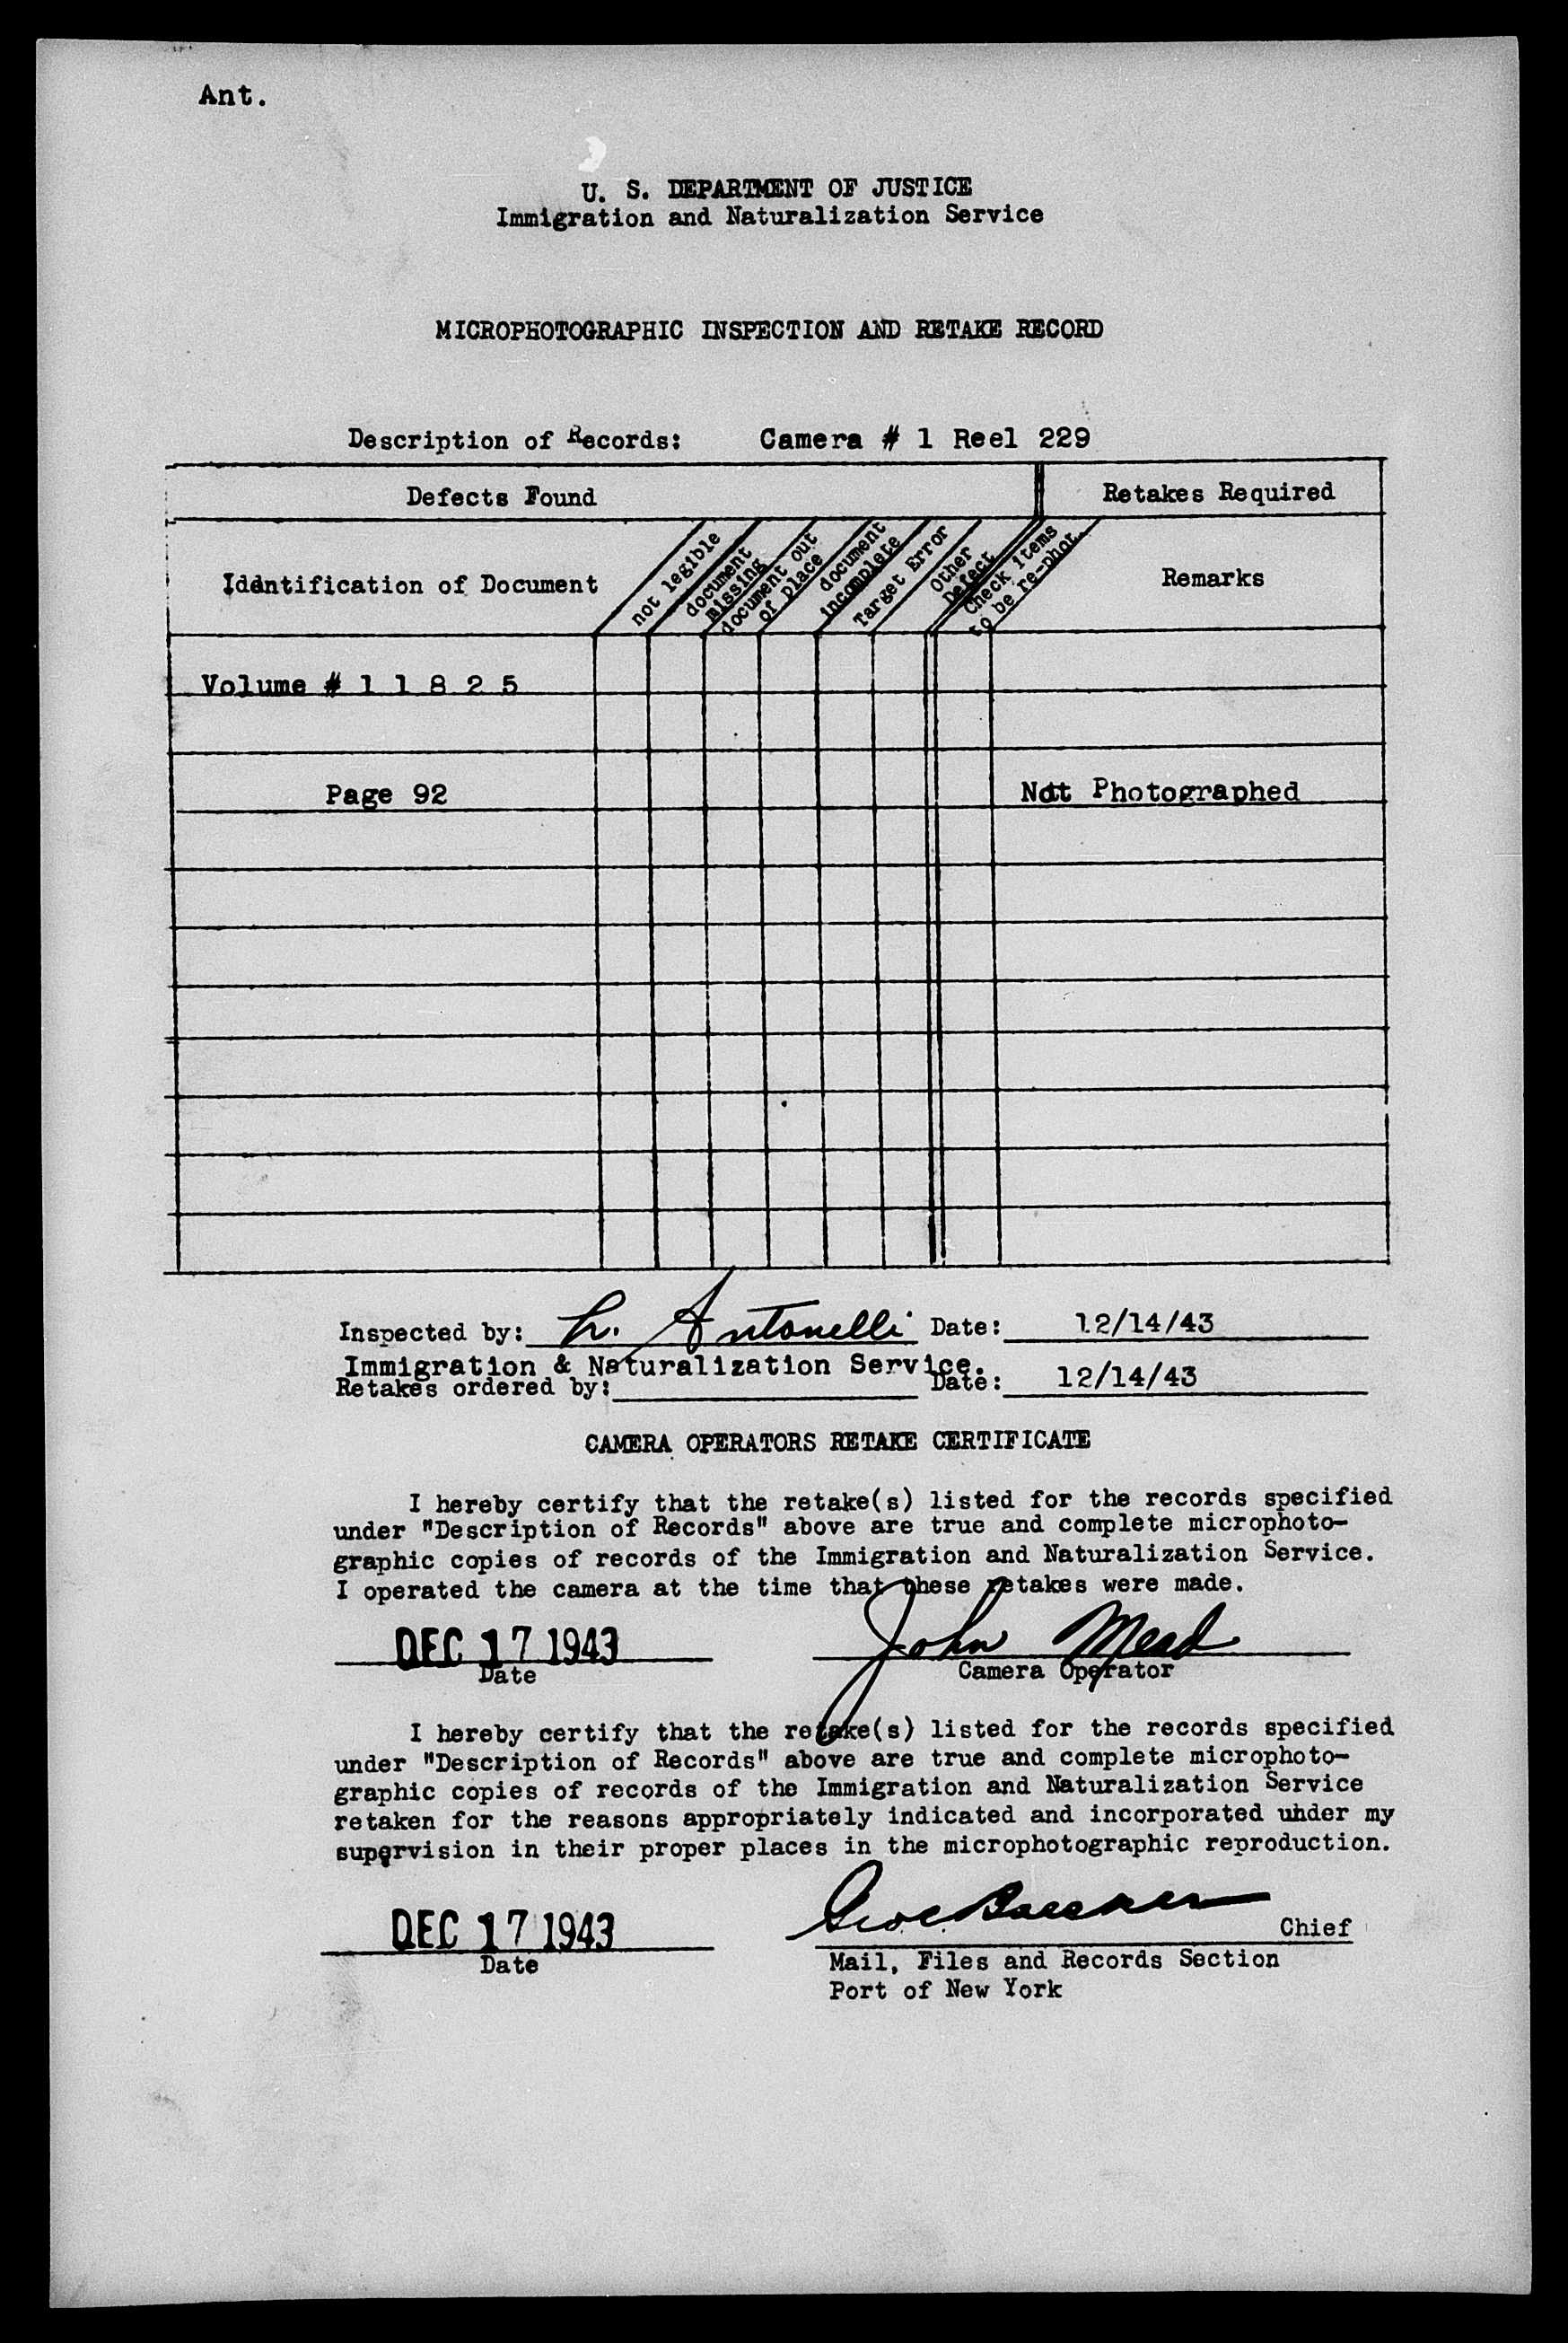 Ant.
U. S. DEPARTMENT OF JUSTICE
Immigration and Naturalization Service
MICROPHOTOGRAPHIC INSPECTION AND RETAKE RECORD
Description of Records: Camera # 1 Reel 229
Defects Found Retakes Required
Identification of Document
not legible
document
missing
document out
of place
document
incomplete
Target Error
Other
Defect
Check items
to be re-phot.
Remarks
Volume # 1 1 8 2 5
Page 92 Not Photographed
Inspected by: L. Antonelli Date: 12/14/43
Immigration & Naturalization Service.
Retakes ordered by: Date: 12/14/43
CAMERA OPERATORS RETAKE CERTIFICATE
I hereby certify that the retake(s) listed for the records specified
under "Description of Records" above are true and complete microphoto-
graphic copies of records of the Immigration and Naturalization Service.
I operated the camera at the time that these retakes were made.
DEC 17 1943 John Mead
Date Camera Operator
I hereby certify that the retake(s) listed for the records specified
under "Description of Records" above are true and complete microphoto-
graphic copies of records of the Immigration and Naturalization Service
retaken for the reasons appropriately indicated and incorporated under my
supervision in their proper places in the microphotographic reproduction.
DEC 17 1943 Chief
Date Mail, Files and Records Section
Port of New York